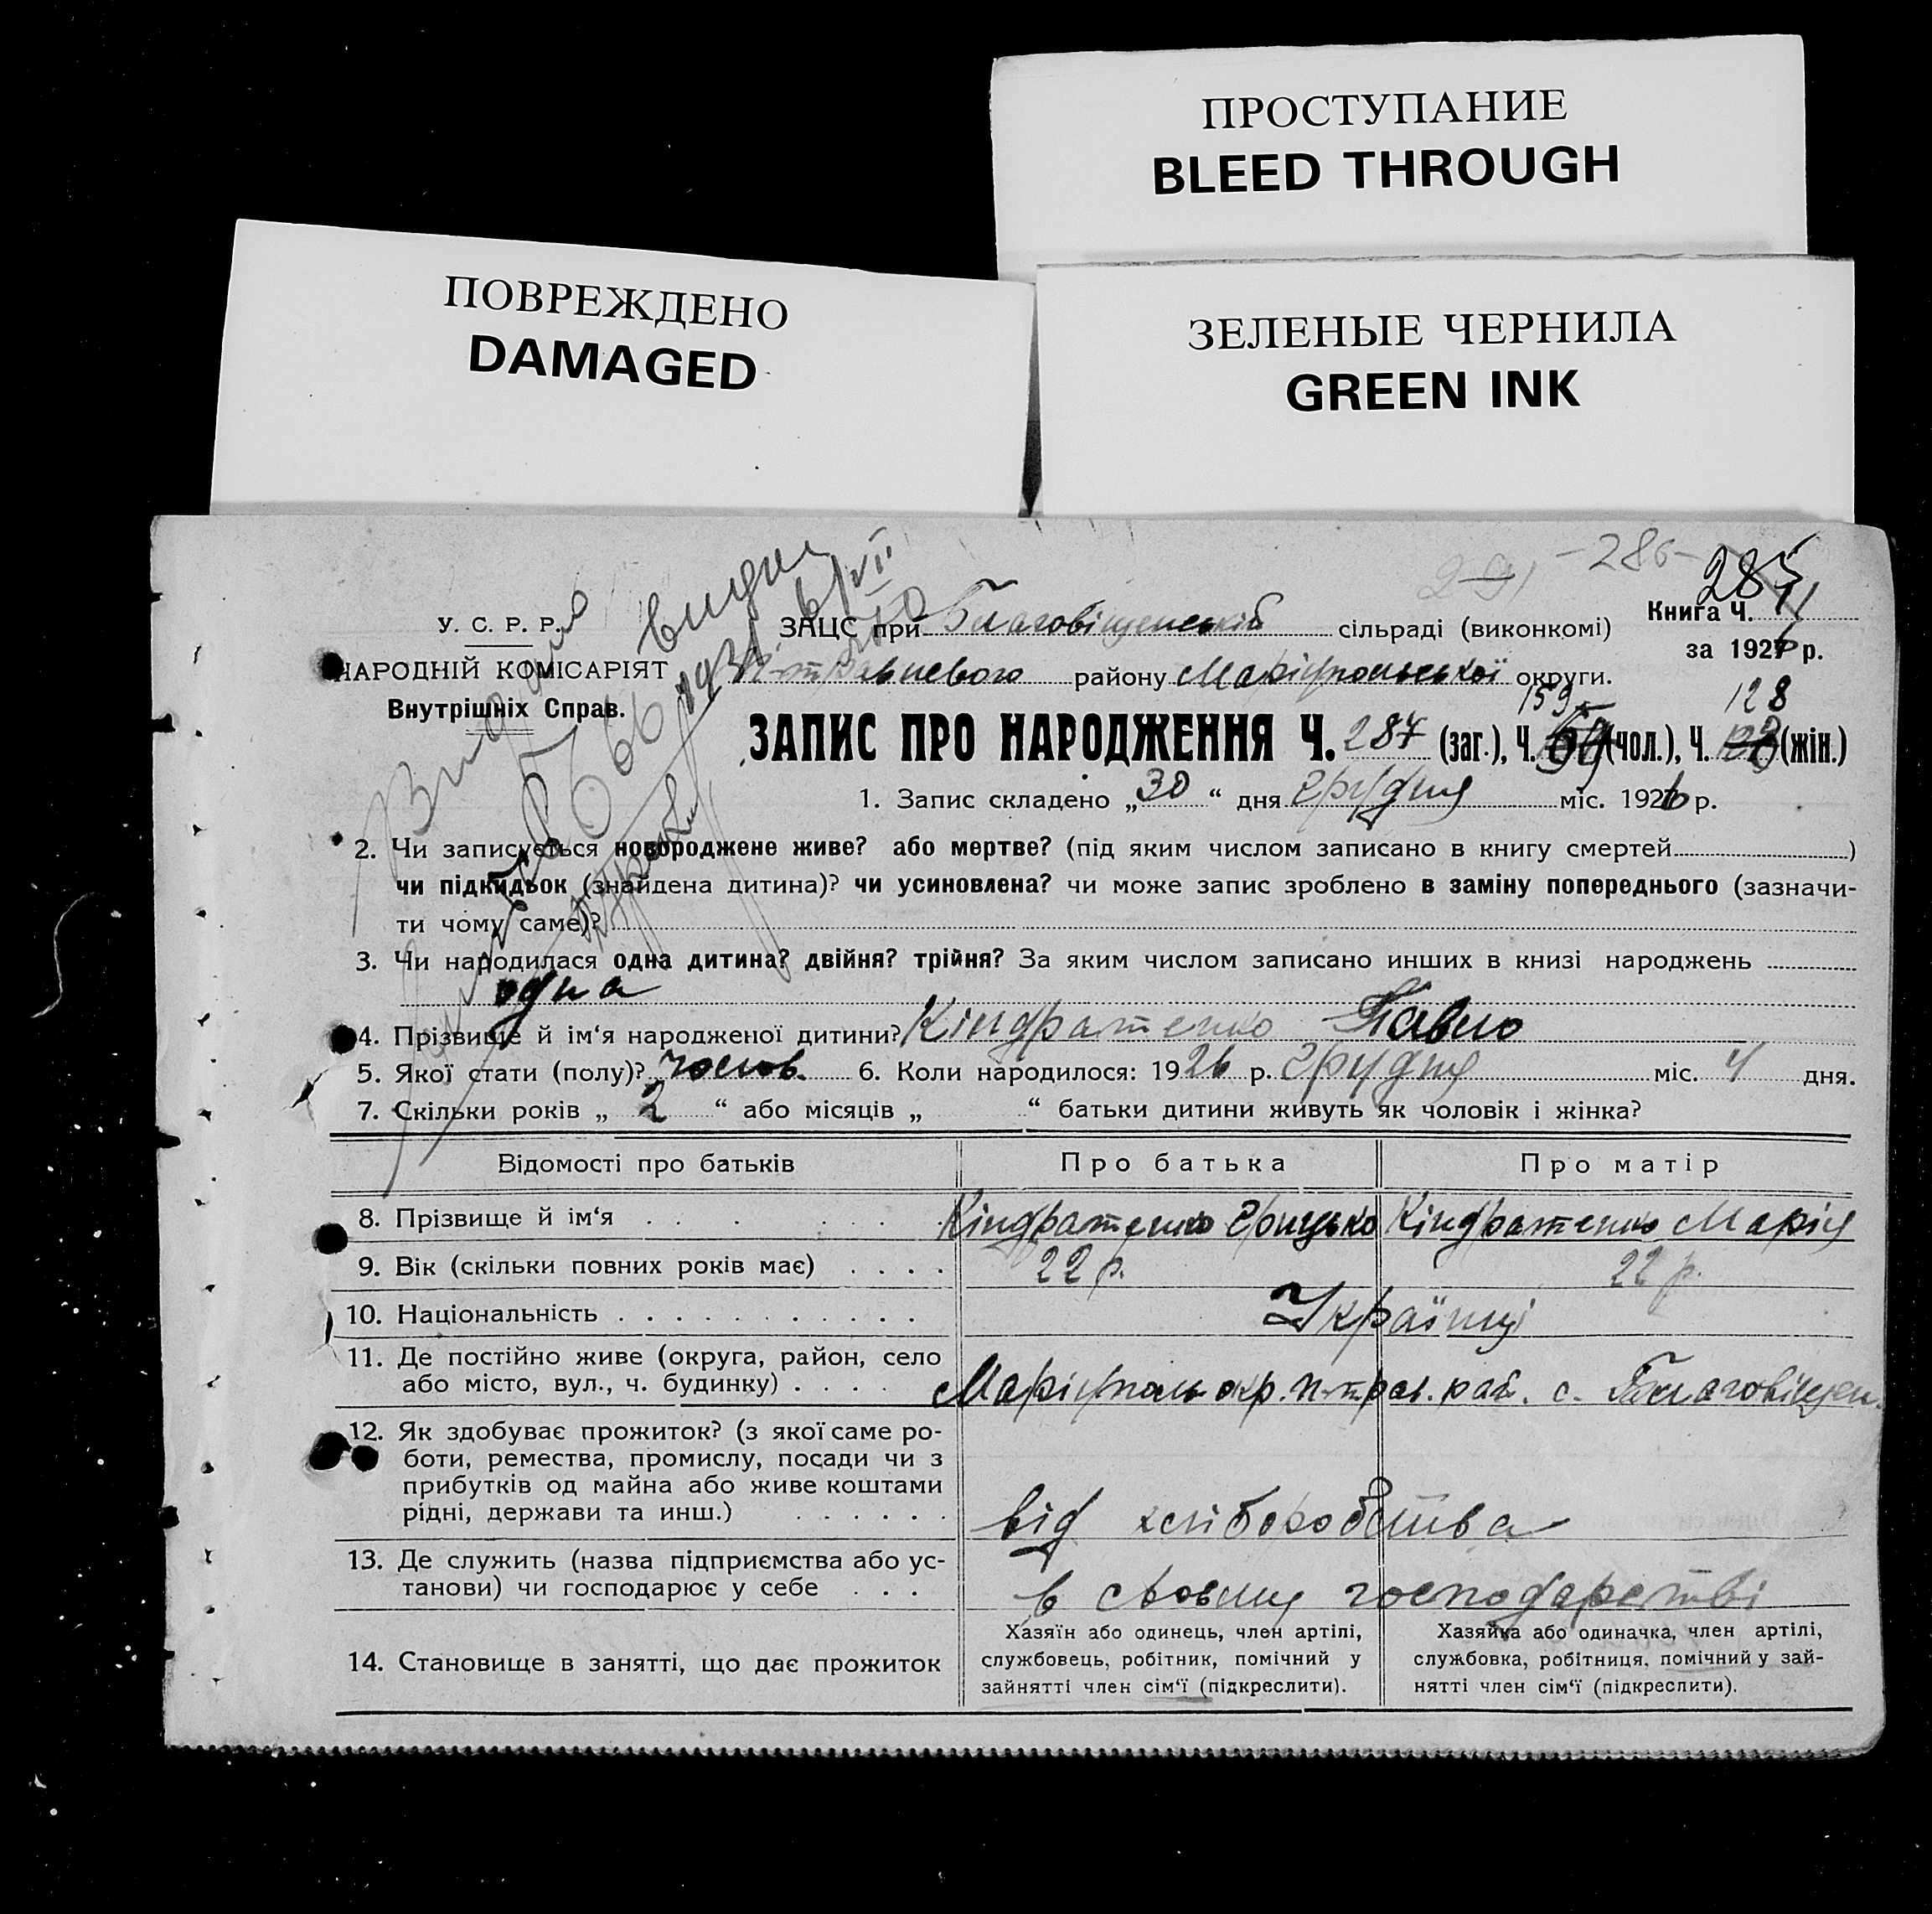 ПРОСТУПАНИЕ
BLEED THROUGH
ПОВРЕЖДЕНО
DAMAGED
ЗЕЛЕНЫЕ ЧЕРНИЛА
GREEN INK
291 -286-
287
У. С. Р. Р.
НАРОДНІЙ КОМІСАРІЯТ
Внутрішніх Справ.
Видано
видан
1931
ЗАЦС при Благовіщенській сільраді (виконкомі)
Книга Ч.
за 1926 р.
П-травневого району Маріюпольської округи.
159 128
ЗАПИС ПРО НАРОДЖЕННЯ Ч. 287 (заг.), Ч. (чол.), Ч. (жін.)
1. Запис складено „30“ дня грудня міс. 1926 р.
2. Чи записується новороджене живе? або мертве? (під яким числом записано в книгу смертей )
чи підкидьок (знайдена дитина)? чи усиновлена? чи може запис зроблено в заміну попереднього (зазначи-
ти чому саме)?
3. Чи народилася одна дитина? двійня? трійня? За яким числом записано инших в книзі народжень
одна
4. Прізвище й ім‘я народженої дитини? Кіндратенко Павло
5. Якої стати (полу)? чолов. 6. Коли народилося: 1926 р. грудня міс. 4 дня.
7. Скільки років „ 2 “ або місяців „ “ батьки дитини живуть як чоловік і жінка?
Відомості про батьків Про батька Про матір
8. Прізвище й ім‘я Кіндратенко Грицько Кіндратенко Марія
9. Вік (скільки повних років має) 22 р. 22 р.
10. Національність Українці
11. Де постійно живе (округа, район, село
або місто, вул., ч. будинку) Маріюполь окр. П-трав. рай. с. Благовіщен.
12. Як здобуває прожиток? (з якої саме ро-
боти, ремества, промислу, посади чи з
прибутків од майна або живе коштами
рідні, держави та инш.) від хліборобства
13. Де служить (назва підприємства або ус-
танови) чи господарює у себе в своєму господарстві
14. Становище в занятті, що дає прожиток
Хазяїн або одинець, член артілі,
службовець, робітник, помічний у
зайнятті член сім‘ї (підкреслити).
Хазяйка або одиначка, член артілі,
службовка, робітниця, помічний у зай-
нятті член сім‘ї (підкреслити).